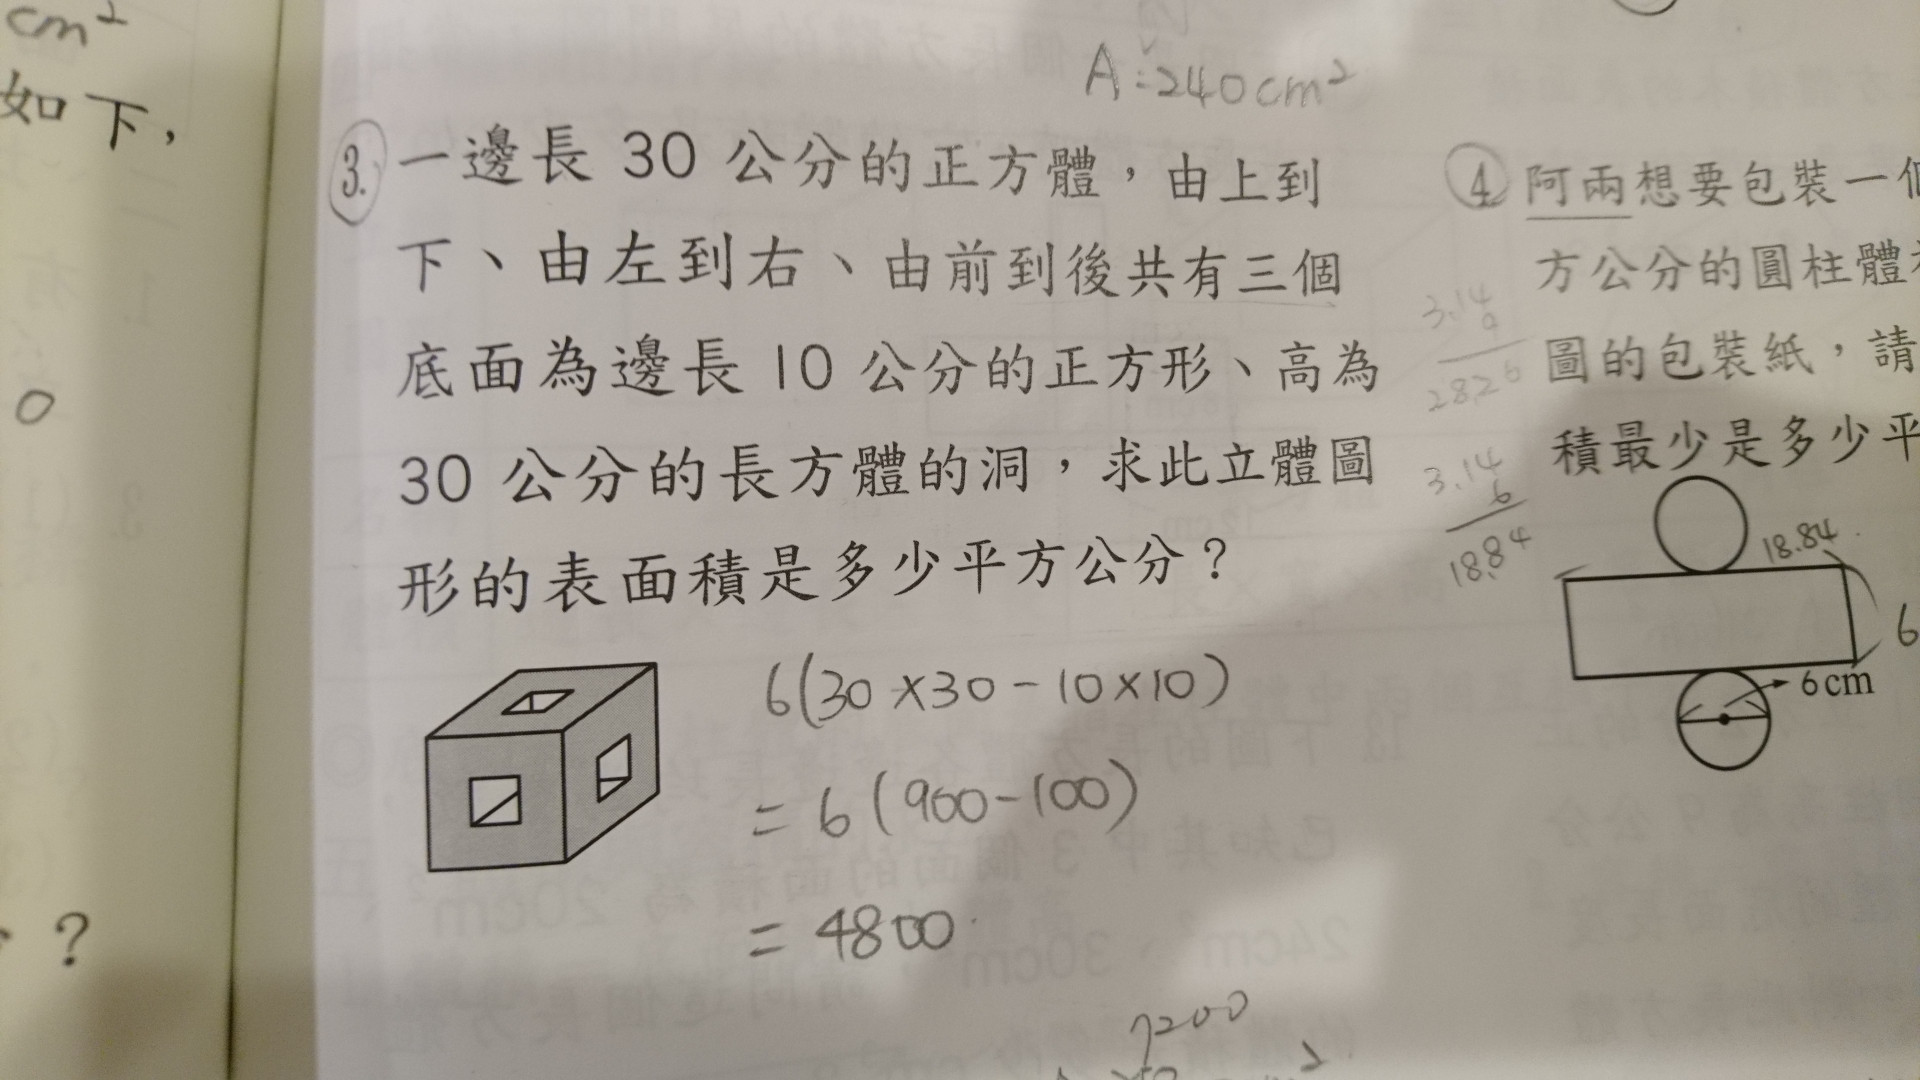 cm²
如下，
0
？
A：240cm²
3. 一邊長 30 公分的正方體，由上到
下、由左到右、由前到後共有三個
底面為邊長 10 公分的正方形、高為
30 公分的長方體的洞，求此立體圖
形的表面積是多少平方公分？
6(30×30-10×10)
=6(900-100)
=4800
7200
4 阿兩想要包裝一個
方公分的圓柱體
圖的包裝紙，請
積最少是多少平
3.14
9
28.26
3.14
6
18.84
18.84
6
6cm